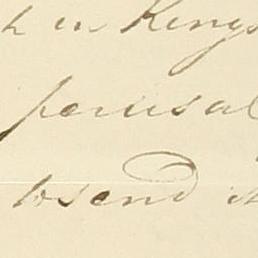 h in Kings
perusal
to send it